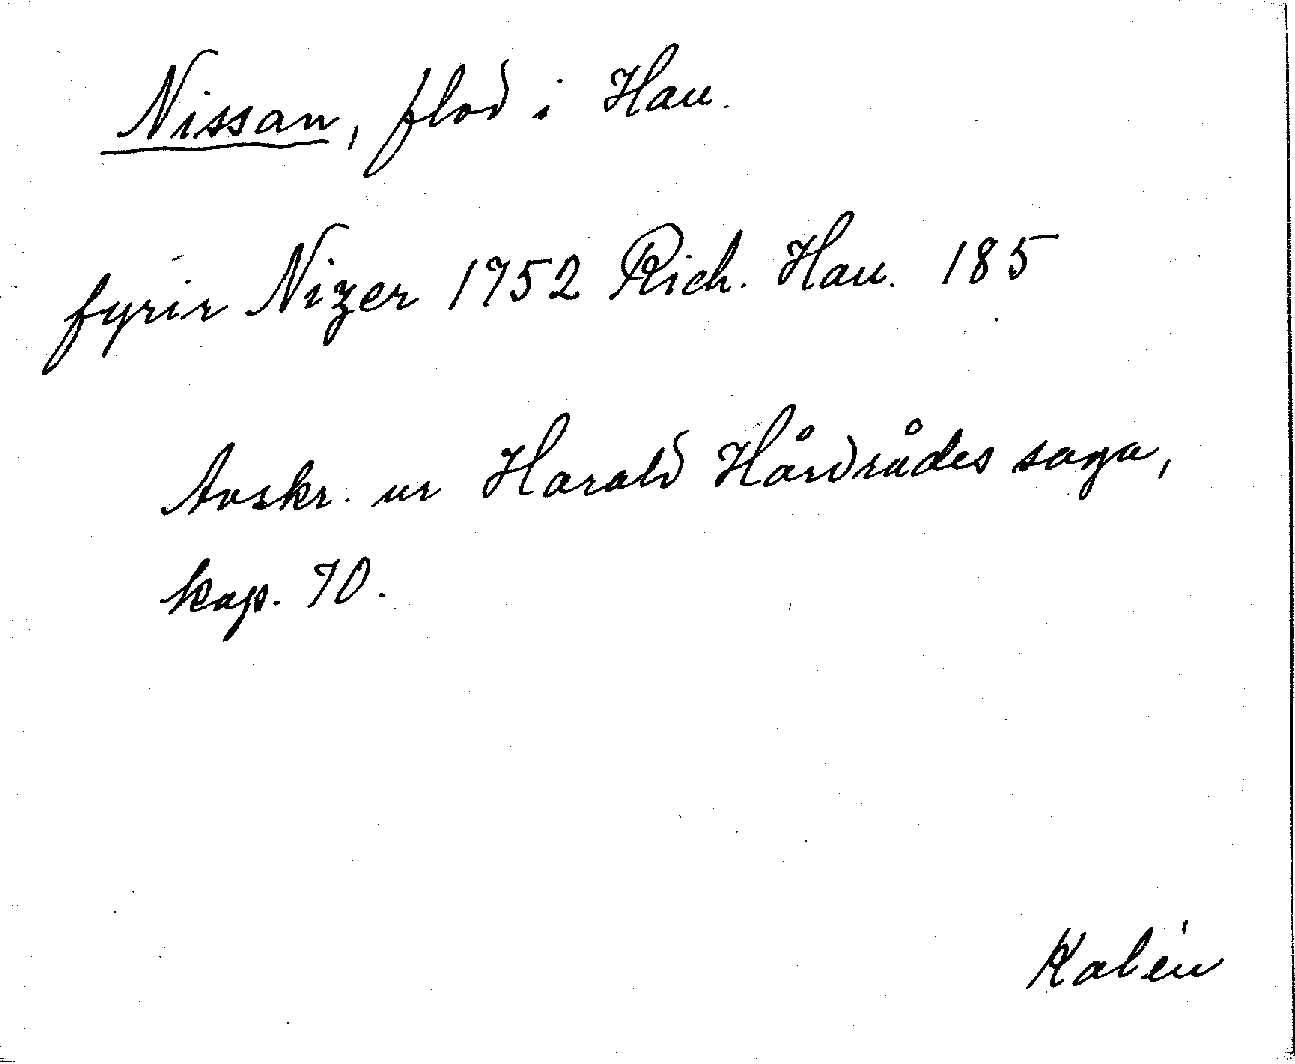 Nissan, flod i Hau.
fyrir Nizer 1752 Rich. Hau. 185
Avskr. ur Harald Hårdrådes saga,
kap. 70.
Kalén